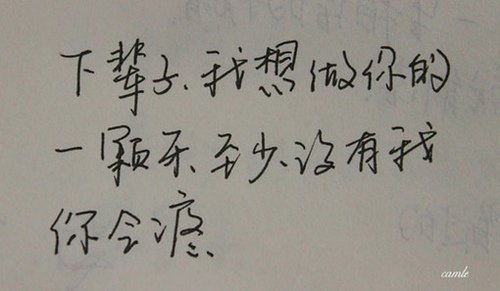 下辈子、我想做你的
一颗牙、至少、没有我
你会疼
camle